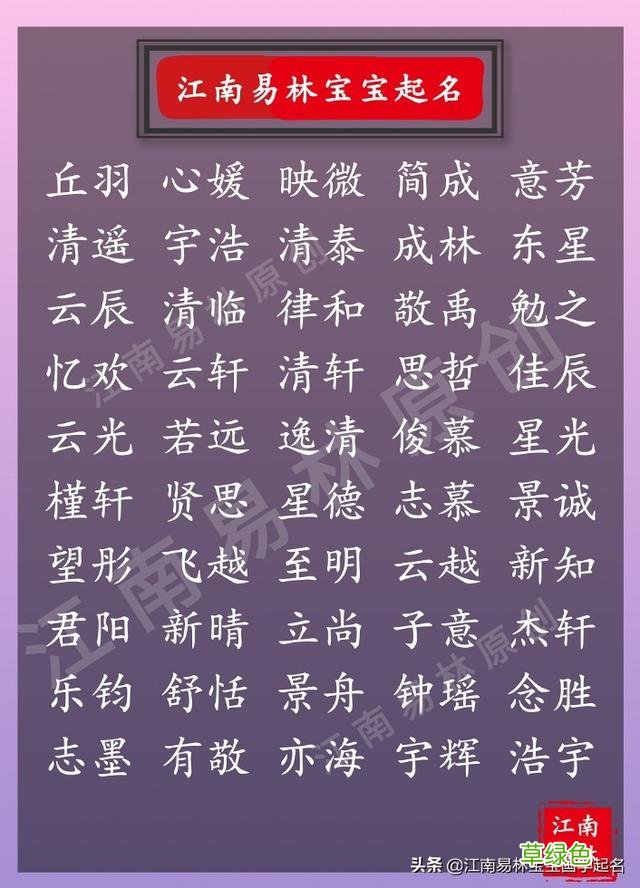 江南易林宝宝起名
丘羽 心媛 映微 简成 意芳
清遥 宇浩 清泰 成林 东星
云辰 清临 律和 敬禹 勉之
忆欢 云轩 清轩 思哲 佳辰
云光 若远 逸清 俊慕 星光
槿轩 贤思 星德 志慕 景诚
望彤 飞越 至明 云越 新知
君阳 新晴 立尚 子意 杰轩
乐钧 舒恬 景舟 钟瑶 念胜
志墨 有敬 亦海 宇辉 浩宇
江南易林原创
江南易林原创
江南易林原创
江南
草绿色
头条 @江南易林宝宝国学起名